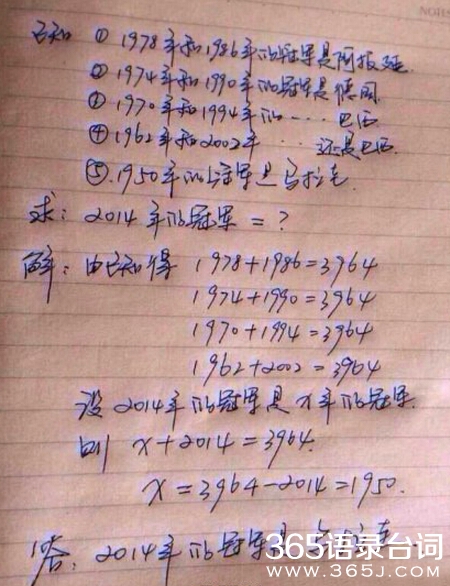 已知 ① 1978年和1986年的冠军是阿根廷.
② 1974年和1990年的冠军是德国.
③ 1970年和1994年的 … 巴西
④ 1962年和2002年 … 还是巴西.
⑤. 1950年的冠军是乌拉圭.
求: 2014年的冠军 = ?
解: 由已知得 1978+1986=3964
1974+1990=3964
1970+1994=3964
1962+2002=3964
设 2014年的冠军是 x年的冠军.
则 x+2014=3964.
x=3964-2014=1950.
答: 2014年的冠军是乌拉圭
365语录台词
www.365j.com
NOTES